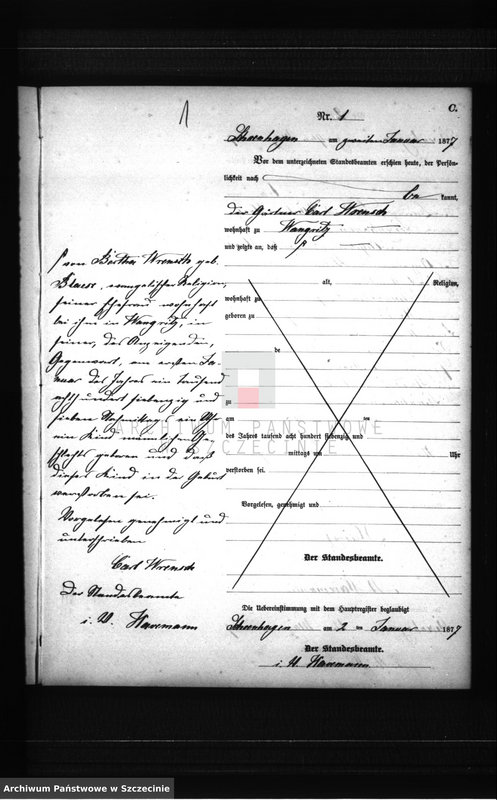 1
C.
Nr. 1
am zweiten Januar 1877
Vor dem unterzeichneten Standesbeamten erschien heute, der Persön-
lichkeit nach
be kannt,
der Gärtner Carl Wrensch
wohnhaft zu Wangritz
und zeigte an, daß
von Bertha Wrensch geb.
evangelischer Religion,
seiner Ehefrau wohnhaft
bei ihm in Wangritz, in
seiner, des Anzeigenden,
Gegenwart, am ersten Ja-
nuar des Jahres ein tausend
acht hundert siebenzig und
sieben Nachmittags ein Uhr
ein Kind männlichen Ge-
schlechts geboren und daß
dieses Kind in der Geburt
verstorben sei.
Vorgelesen genehmigt und
unterschrieben
Carl Wrensch
Der Standesbeamte
i. V.
alt, Religion,
wohnhaft zu
geboren zu
de
zu
am ten
des Jahres tausend acht hundert siebenzig und
mittags um Uhr
verstorben sei.
Vorgelesen, genehmigt und
Der Standesbeamte.
Die Uebereinstimmung mit dem Hauptregister beglaubigt
am 2 ten Januar 1877
Der Standesbeamte.
i. V.
ARCHIWUM PAŃSTWOWE
W SZCZECINIE
Archiwum Państwowe w Szczecinie